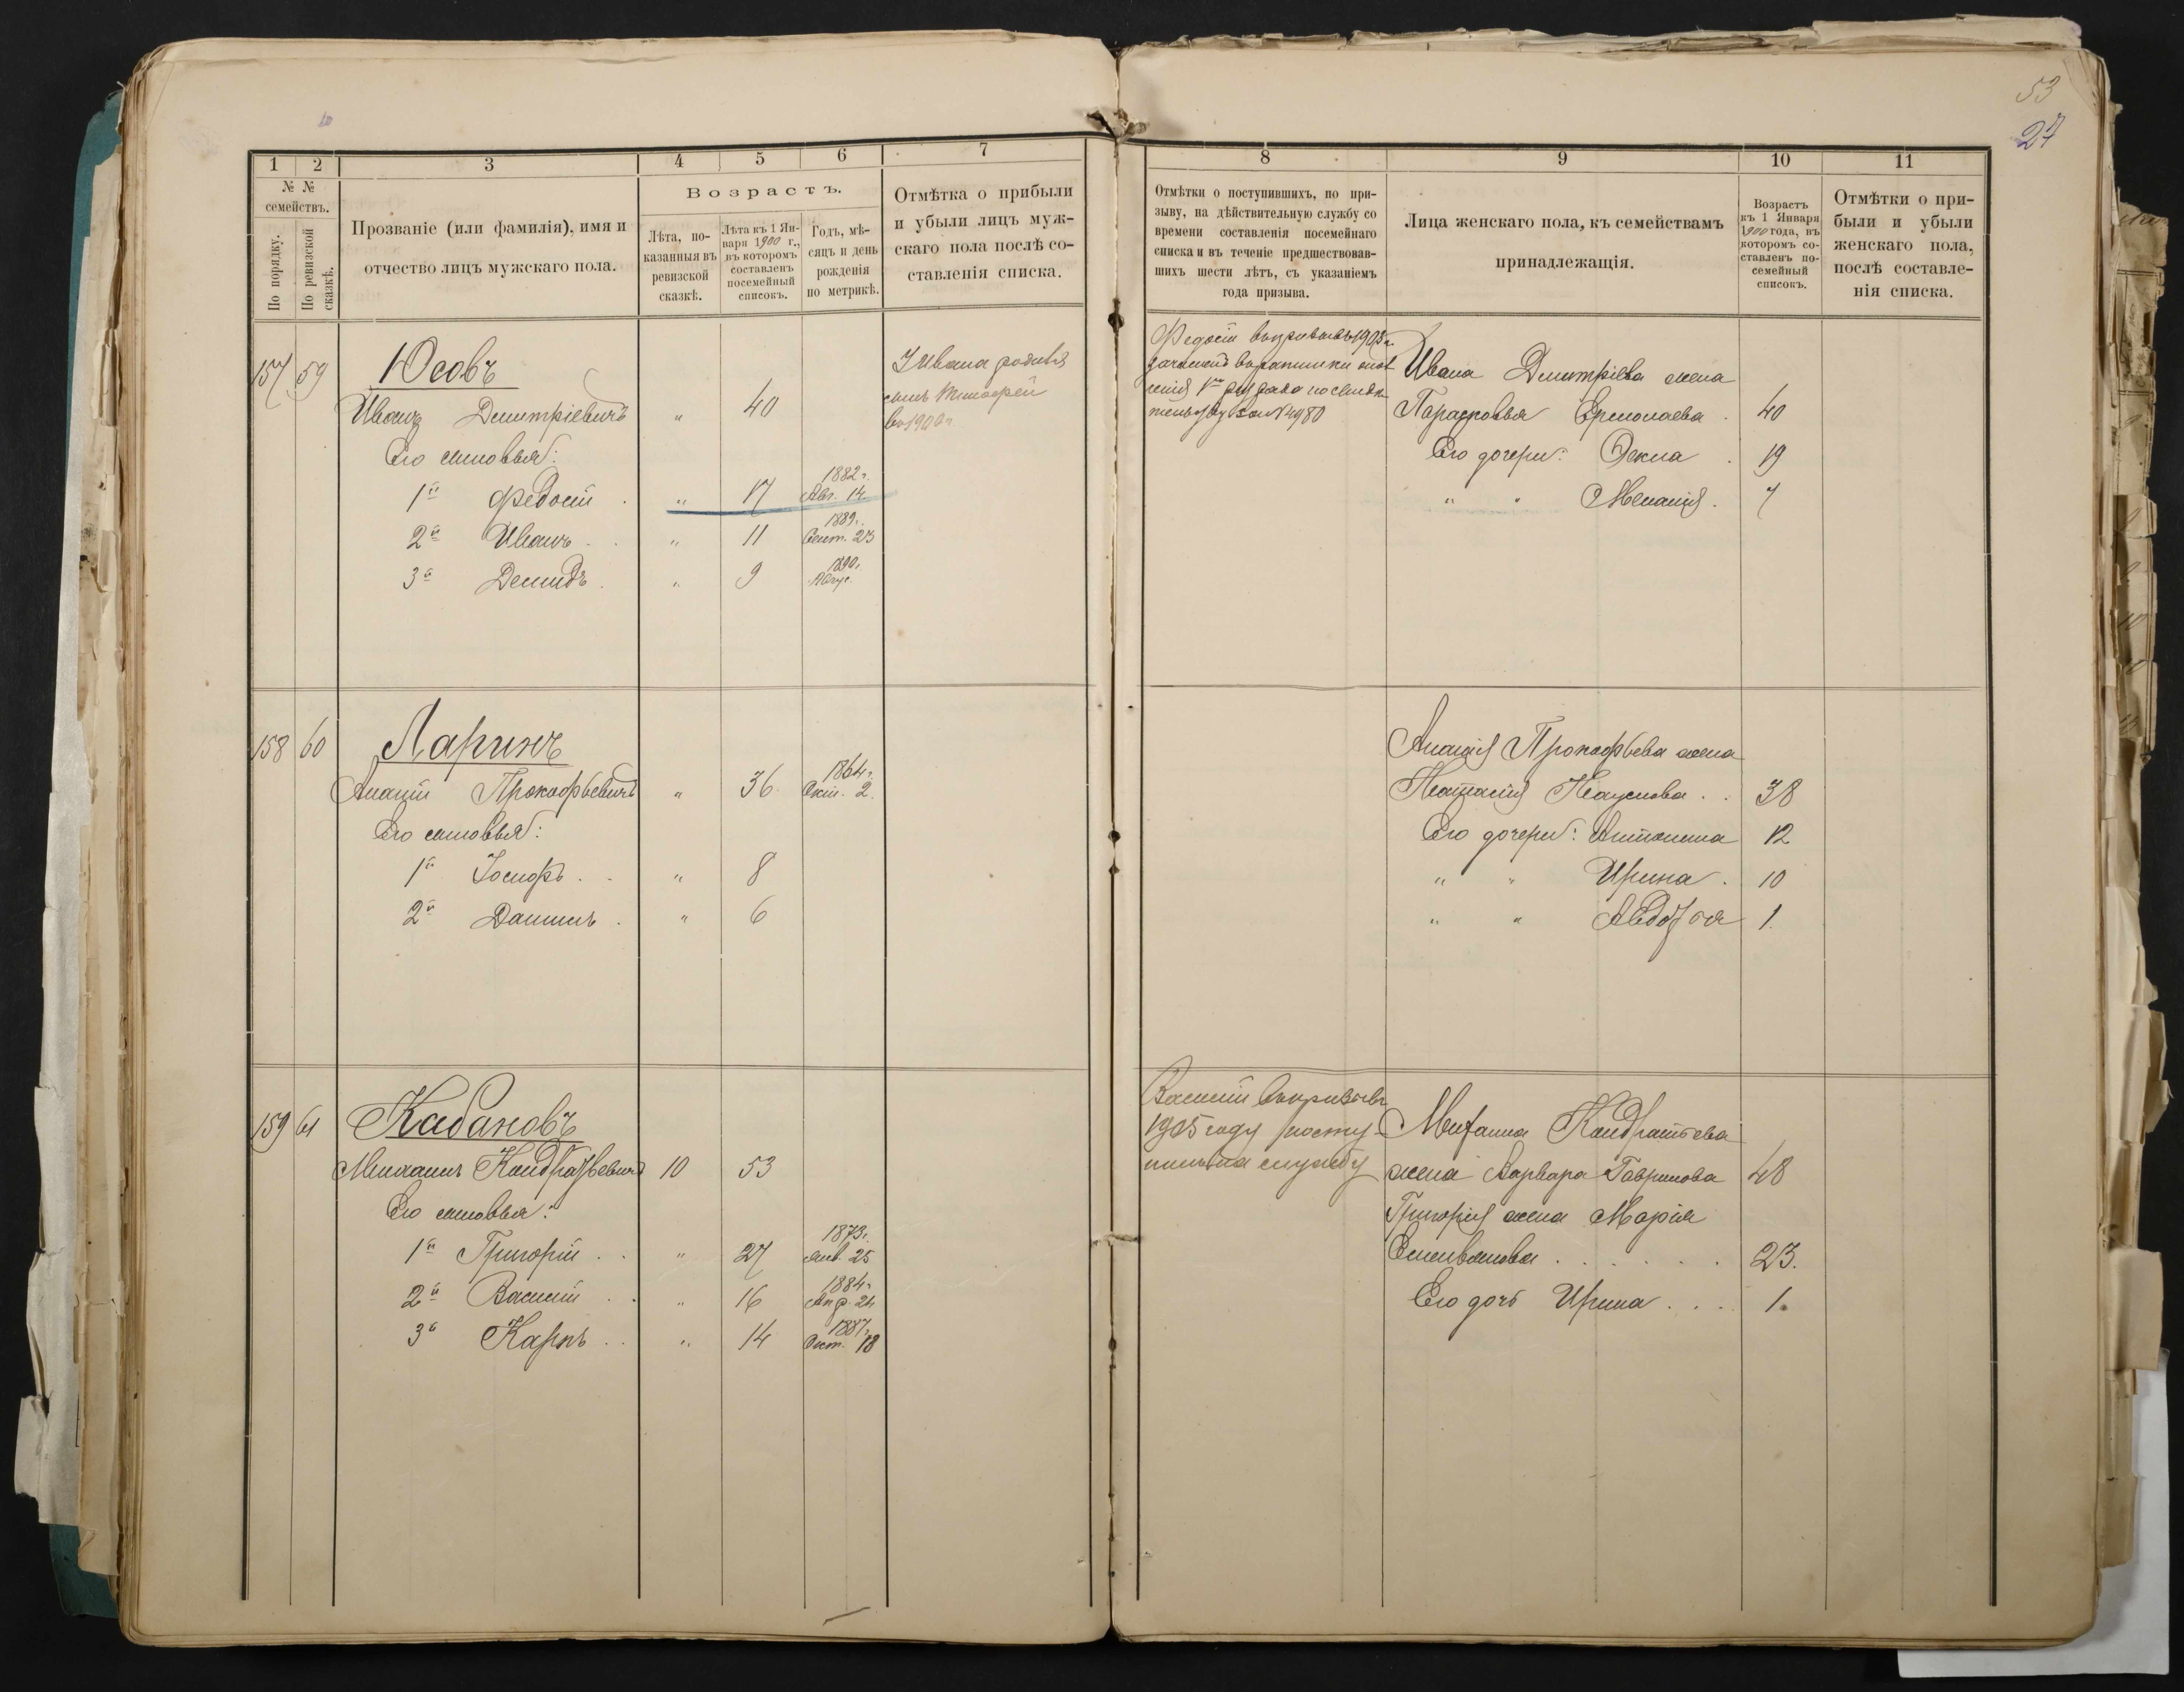 53
27
1 2 3 4 5 6 7
№ №
семействъ.
По порядку.
По ревизской
сказкѣ.
Прозваніе (или фамилія), имя и
отчество лицъ мужскаго пола.
Возрастъ.
Лѣта, по-
казанныя въ
ревизской
сказкѣ.
Лѣта къ 1 Ян-
варя 1900 г.,
въ которомъ
составленъ
посемейный
списокъ.
Годъ, мѣ-
сяцъ и день
рожденія
по метрикѣ.
Отмѣтка о прибыли
и убыли лицъ муж-
скаго пола послѣ со-
ставленія списка.
157 59 Юсовъ
Иванъ Дмитріевичъ " 40
Его сыновья:
1й Федосій " 17 1882г. Авг. 14
2й Иванъ " 11 1889г. Сент. 23
3й Демидъ " 9 1890г. Авгус.
У Ивана родился
сынъ Тимофей
въ 1900г.
158 60 Ларинъ
Ананій Прокофьевичъ " 36 1864г. Окт. 2.
Его сыновья:
1й Іосифъ " 8
2й Даниилъ " 6
159 61 Кабановъ
Михаилъ Кандратьевичъ 10 53
Его сыновья:
1й Григорій " 27 1873г. Янв. 25
2й Василій " 16 1884г. Апр. 24
3й Карпъ " 14 1887г. Окт. 18
8 9 10 11
Отмѣтки о поступившихъ, по при-
зыву, на дѣйствительную службу со
времени составленія посемейнаго
списка и въ теченіе предшествовав-
шихъ шести лѣтъ, съ указаніемъ
года призыва.
Лица женскаго пола, къ семействамъ
принадлежащія.
Возрастъ
къ 1 Января
1900 года, въ
которомъ со-
ставленъ по-
семейный
списокъ.
Отмѣтки о при-
были и убыли
женскаго пола,
послѣ составле-
нія списка.
Федосій въ призывъ 1903г.
зачисленъ въ ратники опол
ченія 1го разряда по свидѣ
тельству за № 4980
Ивана Дмитріева жена
Парасковья Ермолаева 40
Его дочери: Фекла 19
" " Меланія 7
Ананія Прокофьева жена
Наталія Наумова 38
Его дочери: Антонина 12
" " Ирина 10
" " Авдотья 1.
Василій въ призывъ
1905 году посту-
пилъ на службу
Михаила Кандратьева
жена Варвара Гаврилова 48
Григорія жена Марія
Селивановна 23.
Его дочь Ирина 1.